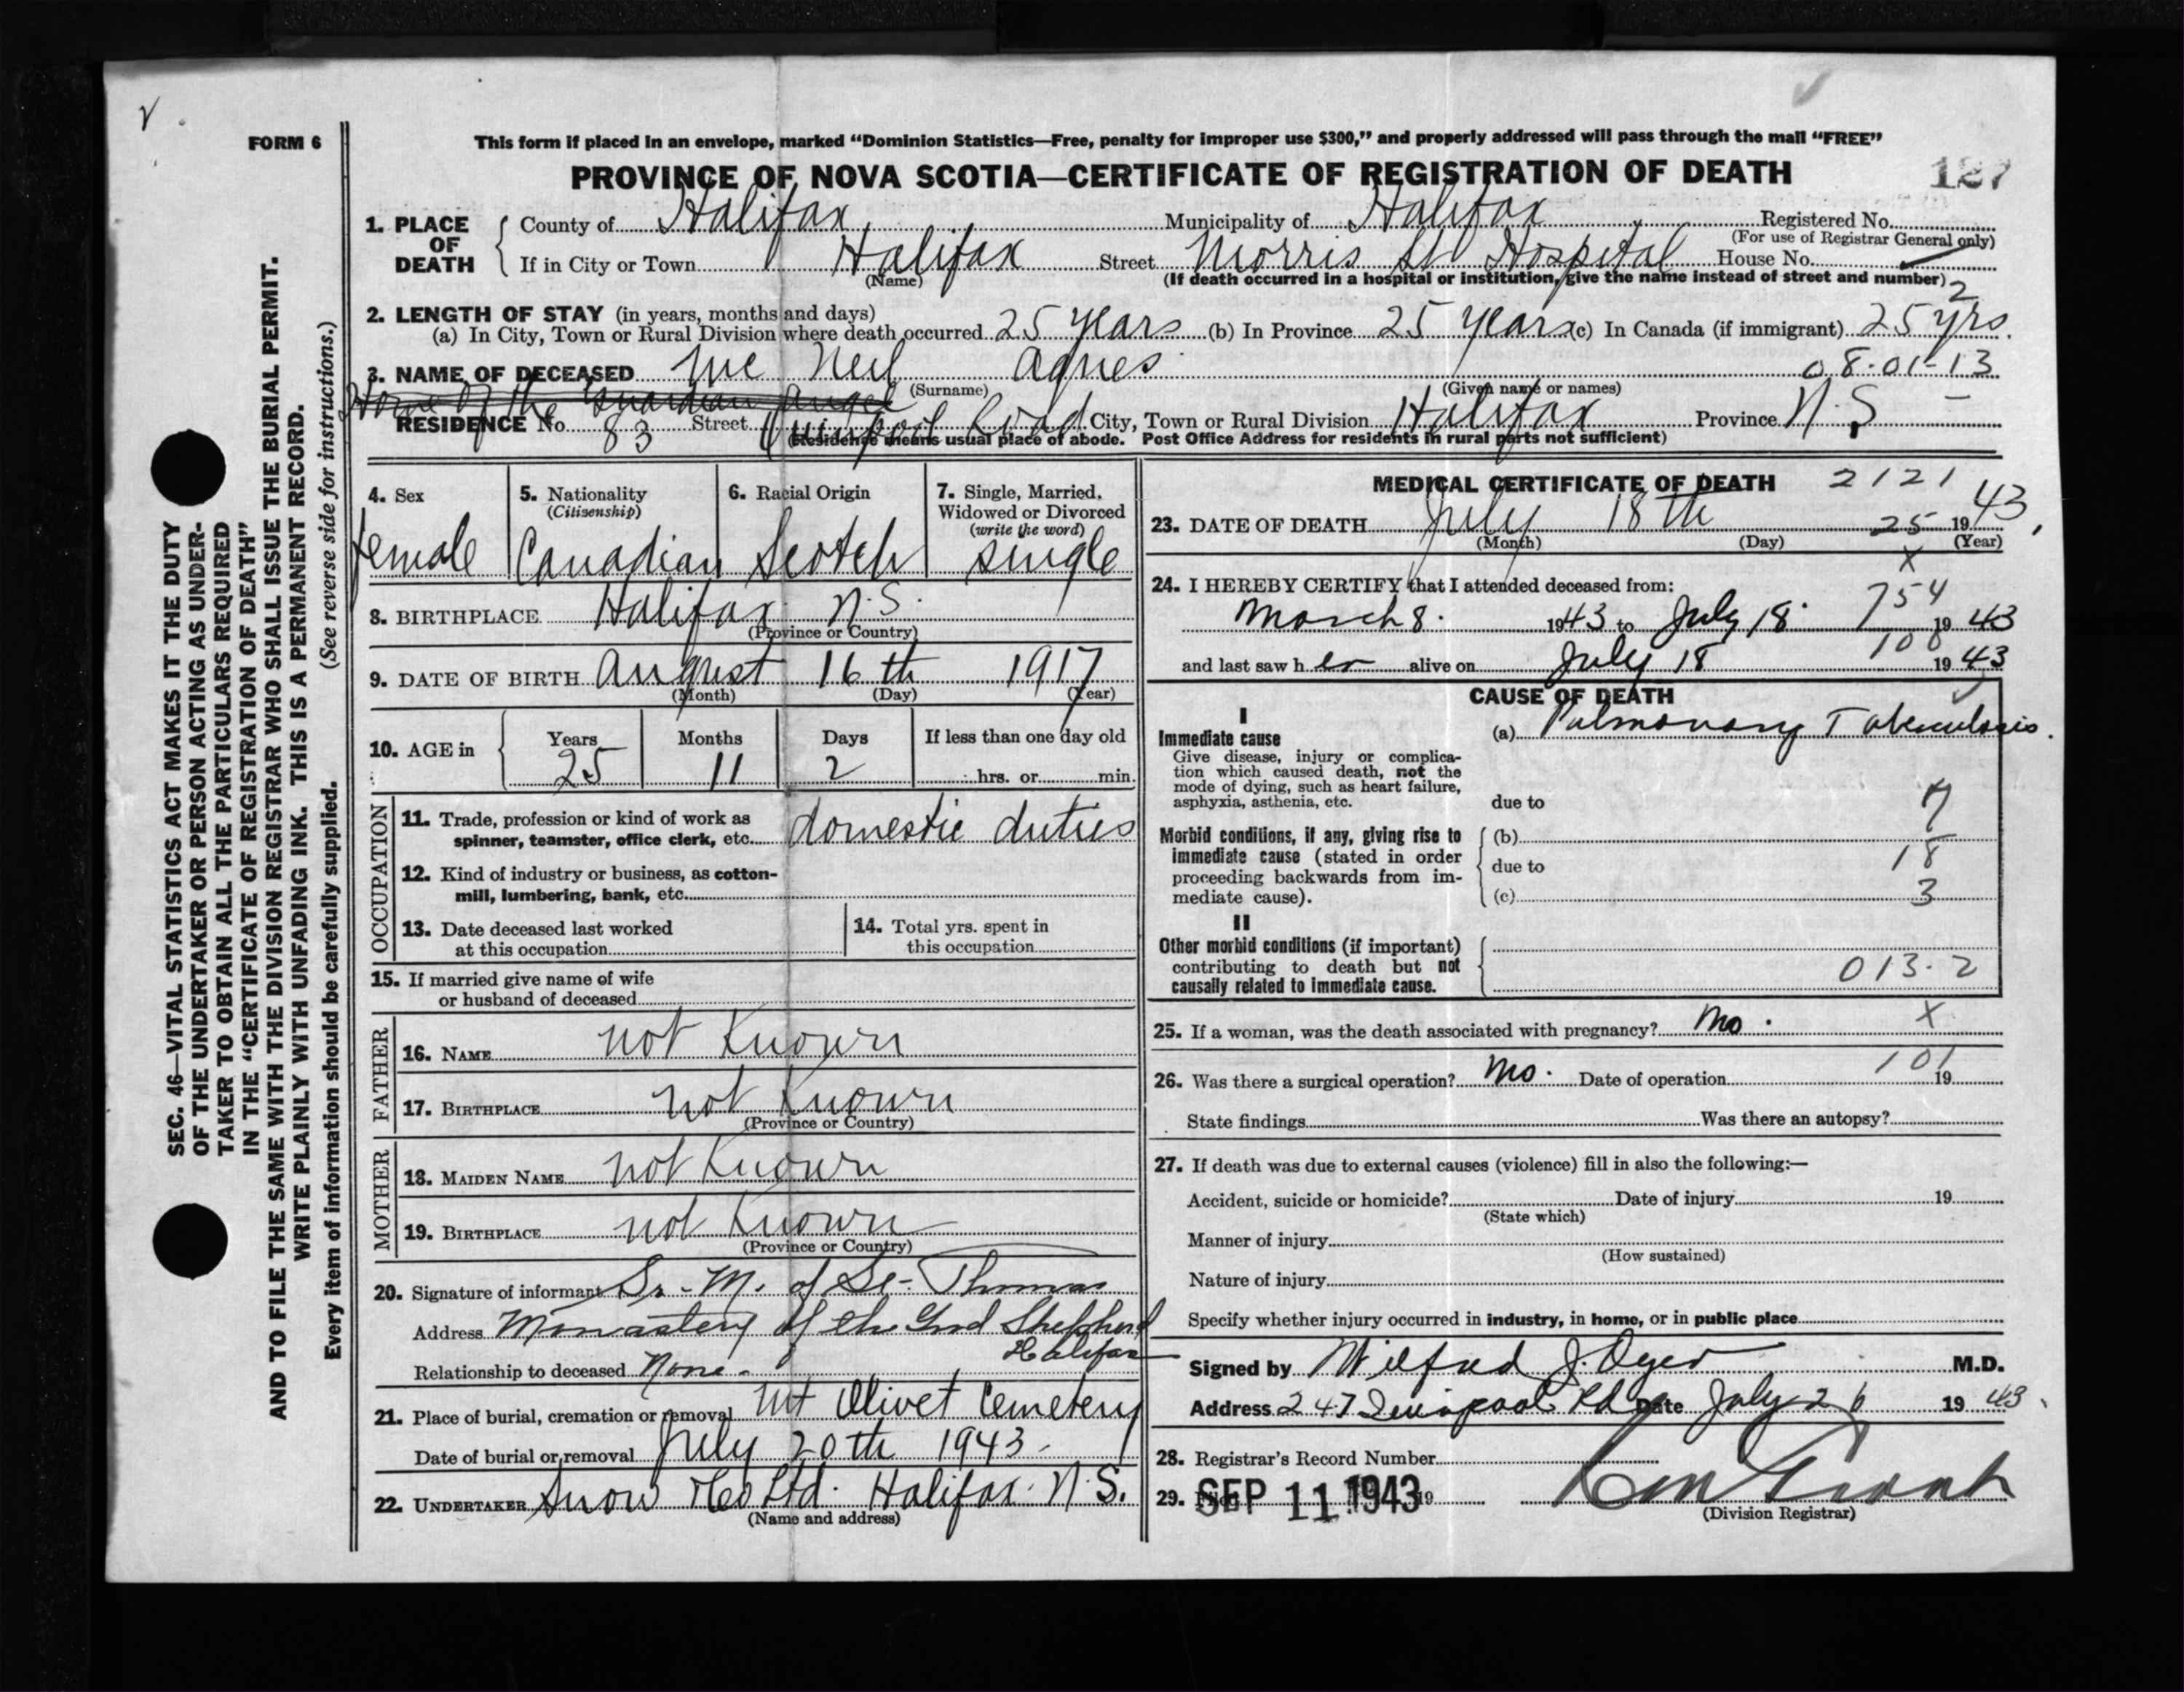 FORM 6
This form if placed in an envelope, marked “Dominion Statistics—Free, penalty for improper use $300,” and properly addressed will pass through the mail “FREE”
PROVINCE OF NOVA SCOTIA—CERTIFICATE OF REGISTRATION OF DEATH
127
1. PLACE OF DEATH
County of Halifax Municipality of Halifax Registered No.
(For use of Registrar General only)
If in City or Town Halifax Street Morris St Hospital House No.
(Name) (If death occurred in a hospital or institution, give the name instead of street and number)
2
2. LENGTH OF STAY (in years, months and days)
(a) In City, Town or Rural Division where death occurred 25 years (b) In Province 25 years (c) In Canada (if immigrant) 25 yrs.
3. NAME OF DECEASED Mc Neil Agnes 08-01-13
(Surname) (Given name or names)
Home of the Guardian Angel
RESIDENCE No. 83 Street Quinpool Road City, Town or Rural Division Halifax Province N.S
(Residence means usual place of abode. Post Office Address for residents in rural parts not sufficient)
4. Sex female
5. Nationality (Citizenship) Canadian
6. Racial Origin Scotch
7. Single, Married, Widowed or Divorced (write the word) single
8. BIRTHPLACE Halifax N.S.
(Province or Country)
9. DATE OF BIRTH August 16th 1917
(Month) (Day) (Year)
10. AGE in Years 25 Months 11 Days 2 If less than one day old
hrs. or min.
OCCUPATION
11. Trade, profession or kind of work as
spinner, teamster, office clerk, etc. domestic duties
12. Kind of industry or business, as cotton-
mill, lumbering, bank, etc.
13. Date deceased last worked
at this occupation
14. Total yrs. spent in
this occupation
15. If married give name of wife
or husband of deceased
FATHER
16. NAME not Known
17. BIRTHPLACE not Known
(Province or Country)
MOTHER
18. MAIDEN NAME not Known
19. BIRTHPLACE not Known
(Province or Country)
20. Signature of informant Sr. M. of St. Thomas
Address Monastery of the Good Shepherd
Halifax
Relationship to deceased None
21. Place of burial, cremation or removal Mt Olivet Cemetery
Date of burial or removal July 20th 1943
22. UNDERTAKER Snow & Co Ltd. Halifax N.S.
(Name and address)
MEDICAL CERTIFICATE OF DEATH 2121
23. DATE OF DEATH July 18th 25 1943
(Month) (Day) (Year)
X
24. I HEREBY CERTIFY that I attended deceased from:
754
March 8. 1943 to July 18. 1943
100
and last saw her alive on July 18 1943
CAUSE OF DEATH
I
Immediate cause
Give disease, injury or complica-
tion which caused death, not the
mode of dying, such as heart failure,
asphyxia, asthenia, etc.
(a) Pulmonary Tuberculosis.
due to
7
Morbid conditions, if any, giving rise to
immediate cause (stated in order
proceeding backwards from im-
mediate cause).
(b)
due to 18
(c) 3
II
Other morbid conditions (if important)
contributing to death but not
causally related to immediate cause.
013.2
25. If a woman, was the death associated with pregnancy? No. X
26. Was there a surgical operation? No. Date of operation 19
101
State findings Was there an autopsy?
27. If death was due to external causes (violence) fill in also the following:—
Accident, suicide or homicide? Date of injury 19
(State which)
Manner of injury
(How sustained)
Nature of injury
Specify whether injury occurred in industry, in home, or in public place
Signed by Wilfred J. Dyer M.D.
Address 247 Quinpool Rd Date July 26 1943
28. Registrar's Record Number
29. SEP 11 1943 19
(Division Registrar)
SEC. 46—VITAL STATISTICS ACT MAKES IT THE DUTY
OF THE UNDERTAKER OR PERSON ACTING AS UNDER-
TAKER TO OBTAIN ALL THE PARTICULARS REQUIRED
IN THE “CERTIFICATE OF REGISTRATION OF DEATH”
AND TO FILE THE SAME WITH THE DIVISION REGISTRAR WHO SHALL ISSUE THE BURIAL PERMIT.
WRITE PLAINLY WITH UNFADING INK. THIS IS A PERMANENT RECORD.
Every item of information should be carefully supplied. (See reverse side for instructions.)